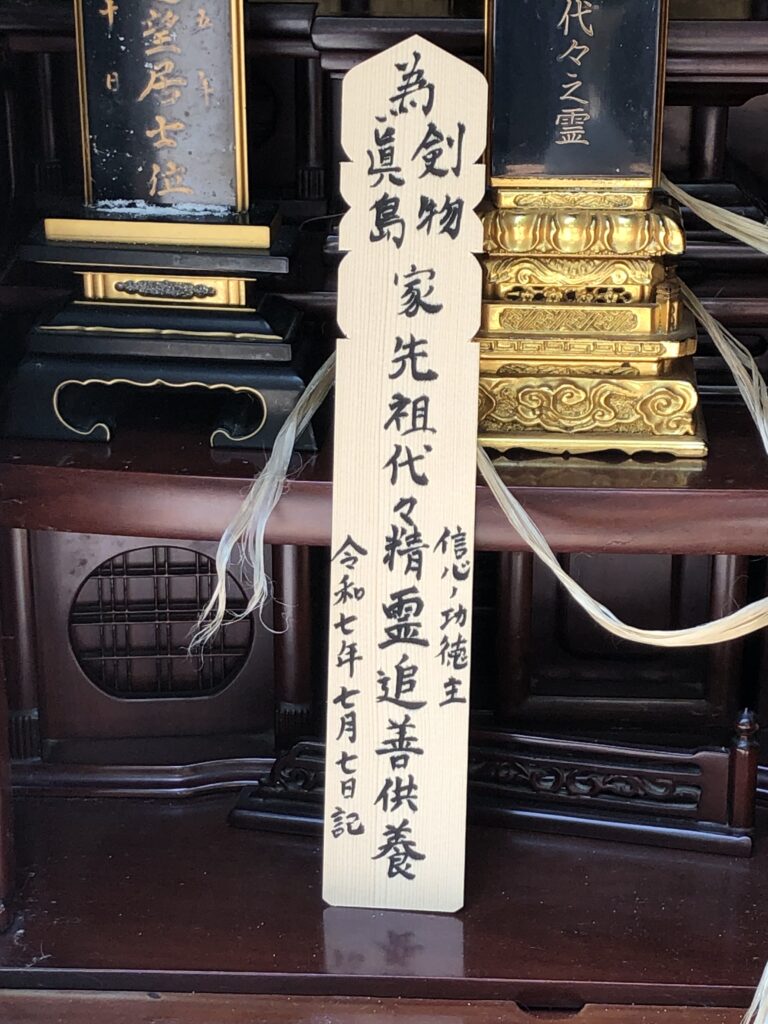 代々之霊
為
剣物
眞島
家先祖代々精霊追善供養
信心ノ功徳主
令和七年七月七日記
五年
望居士位
十日